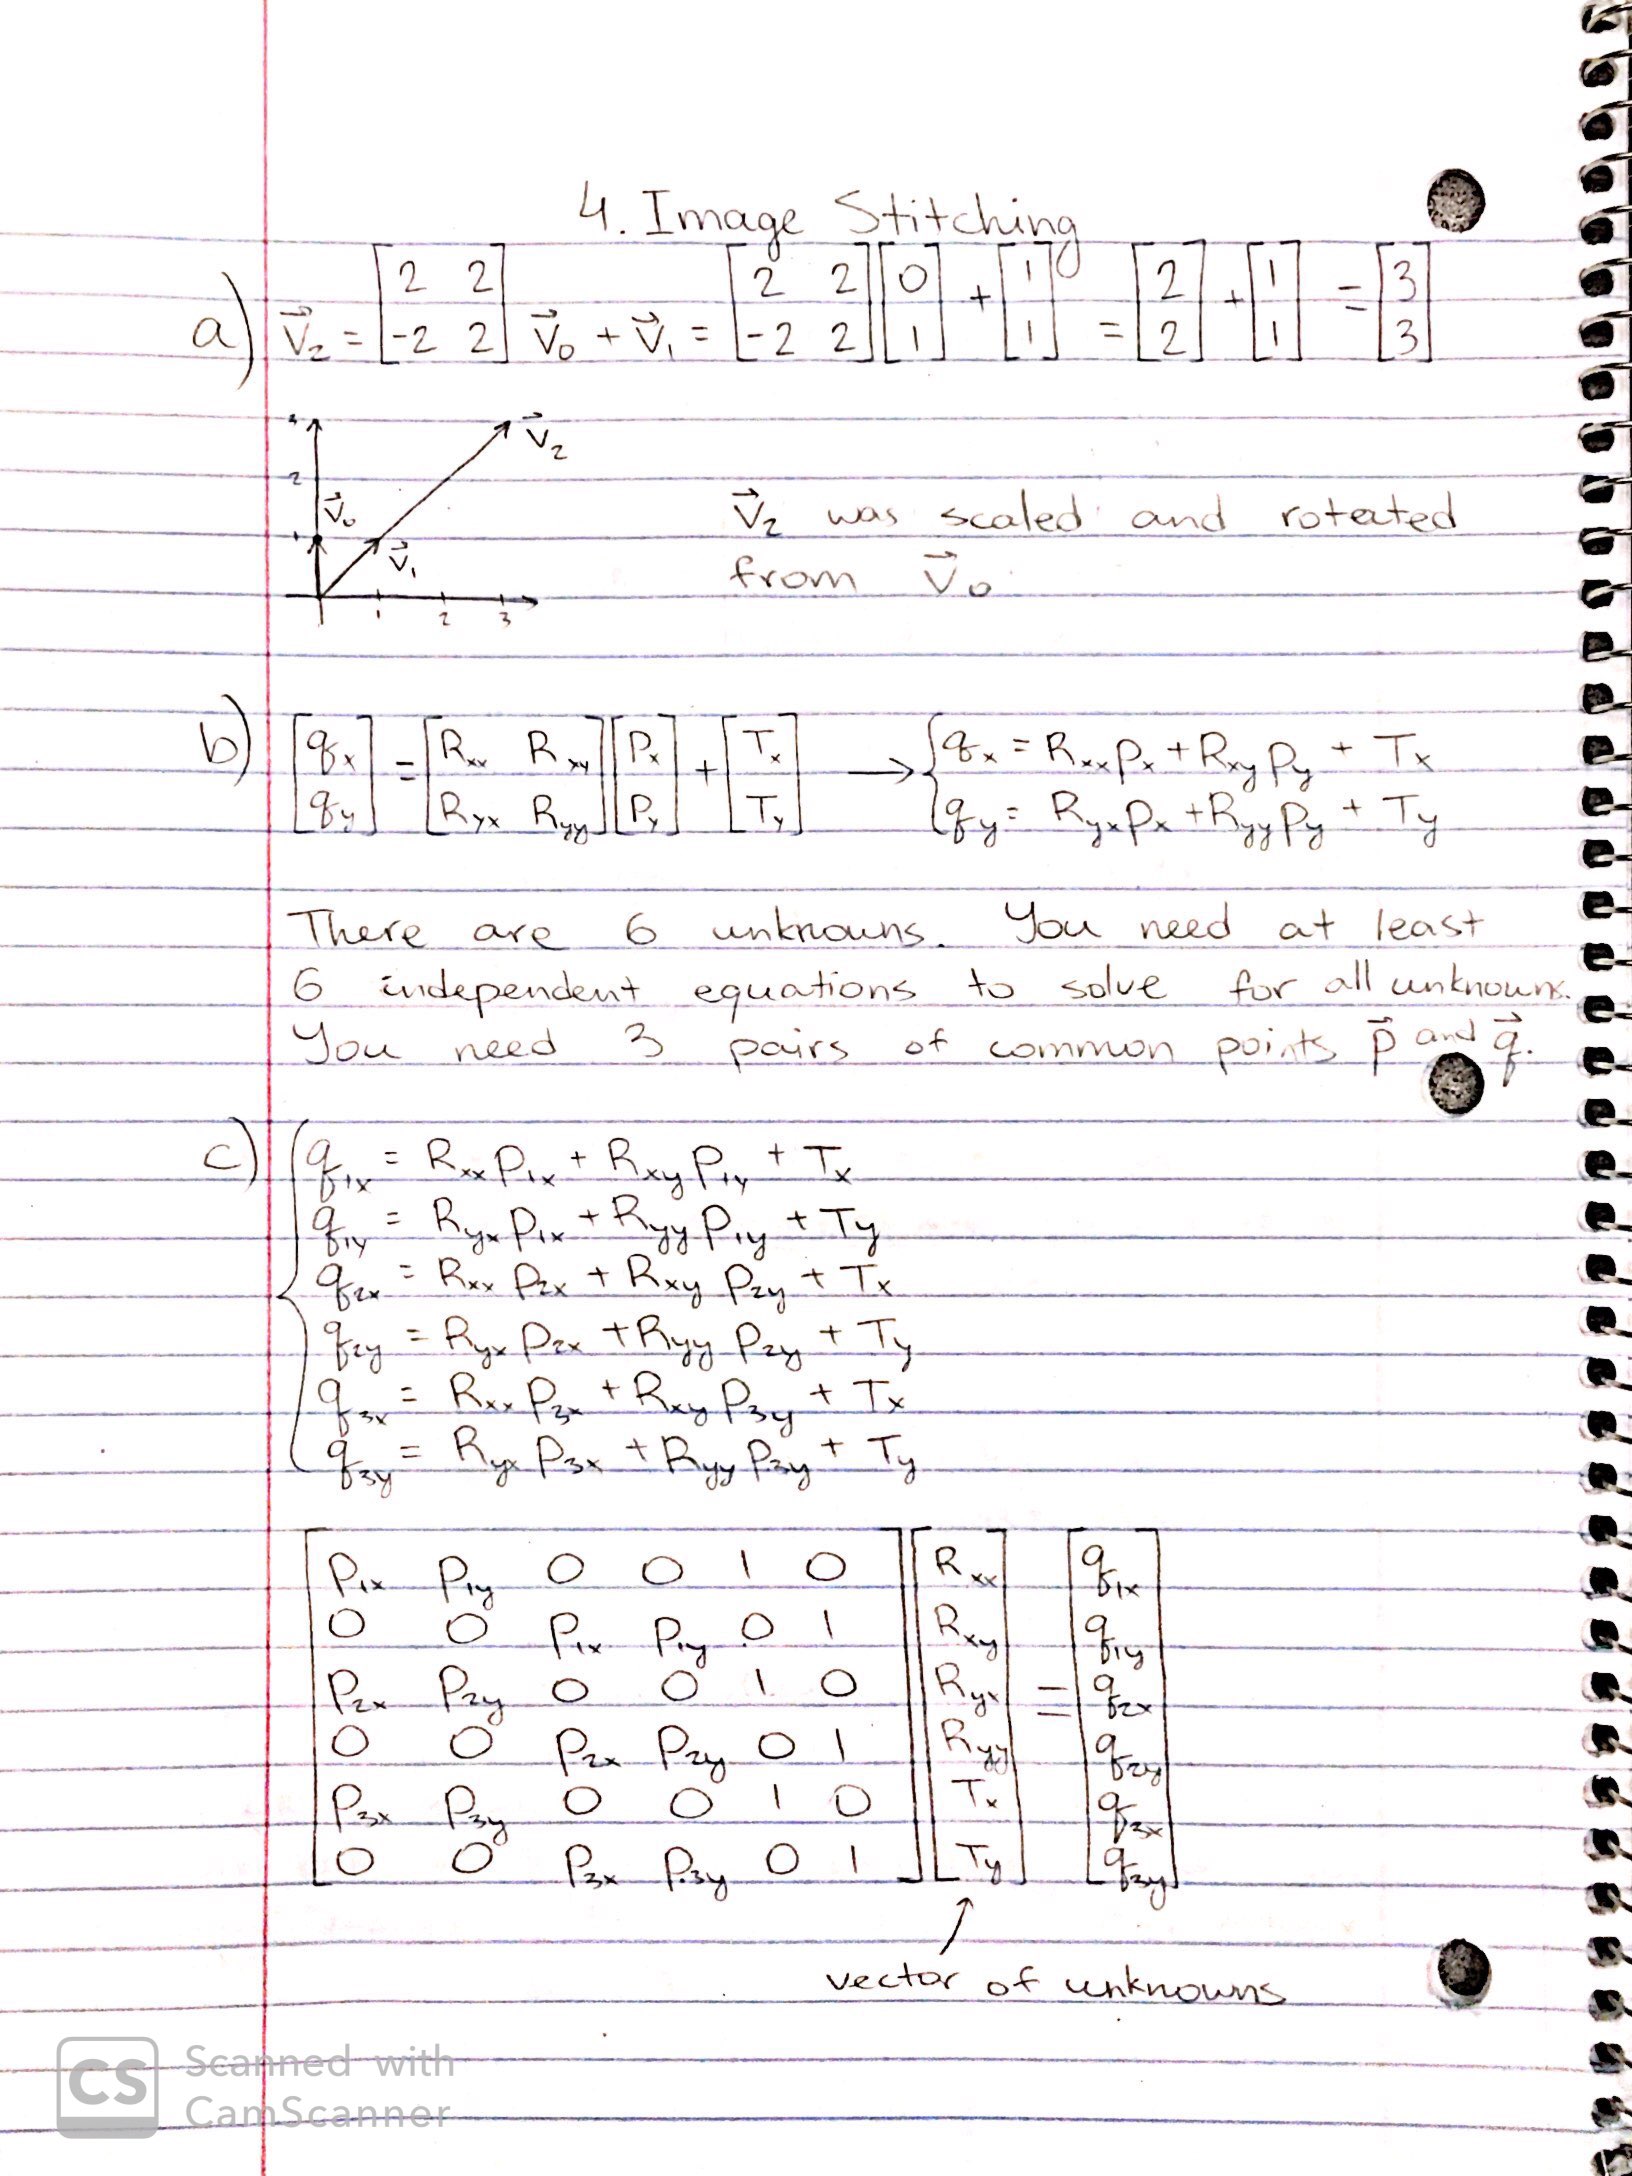 4. Image Stitching
a) v⃗₂ = [2 2; -2 2] v⃗₀ + v⃗₁ = [2 2; -2 2] [0; 1] + [1; 1] = [2; 2] + [1; 1] = [3; 3]
v⃗₂
2
v⃗₀
1
v⃗₁
1 2 3
v⃗₂ was scaled and rotated
from v⃗₀.
b) [qₓ; q_y] = [Rₓₓ R_xy; R_yx R_yy] [Pₓ; P_y] + [Tₓ; T_y] → { qₓ = Rₓₓpₓ + R_xy p_y + Tₓ
q_y = R_yx pₓ + R_yy p_y + T_y
There are 6 unknowns. You need at least
6 independent equations to solve for all unknowns.
You need 3 pairs of common points p⃗ and q⃗.
c) { q_1x = R_xx p_1x + R_xy p_1y + T_x
q_1y = R_yx p_1x + R_yy p_1y + T_y
q_2x = R_xx p_2x + R_xy p_2y + T_x
q_2y = R_yx p_2x + R_yy p_2y + T_y
q_3x = R_xx p_3x + R_xy p_3y + T_x
q_3y = R_yx p_3x + R_yy p_3y + T_y
p_1x p_1y 0 0 1 0 R_xx q_1x
0 0 p_1x p_1y 0 1 R_xy q_1y
p_2x p_2y 0 0 1 0 R_yx = q_2x
0 0 p_2x p_2y 0 1 R_yy q_2y
p_3x p_3y 0 0 1 0 T_x q_3x
0 0 p_3x p_3y 0 1 T_y q_3y
vector of unknowns
CS
Scanned with
CamScanner